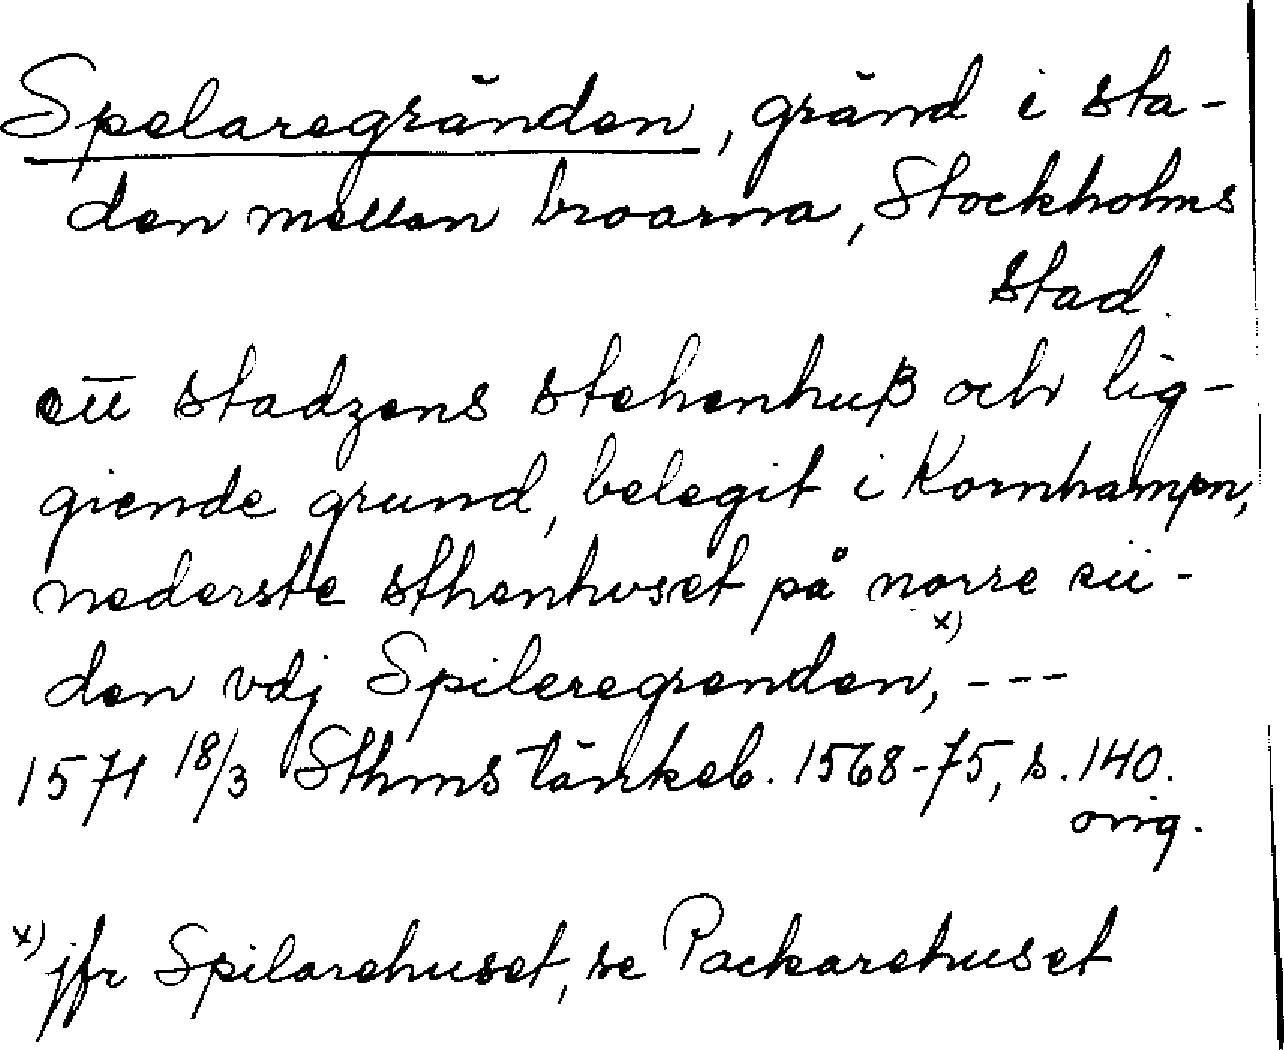 Spelaregränden, gränd i sta-
den mellan broarna, Stockholms
stad.
ett stadzens stehenhuß och lig-
giende grund, belegit i Kornhampn,
nederste sthenhvset på norre sii-
den vdj Spileregrenden,x) ---
1571 18/3 Sthms tänkeb. 1568-75, s. 140.
orig.
x) jfr Spilarehuset, se Packarehuset